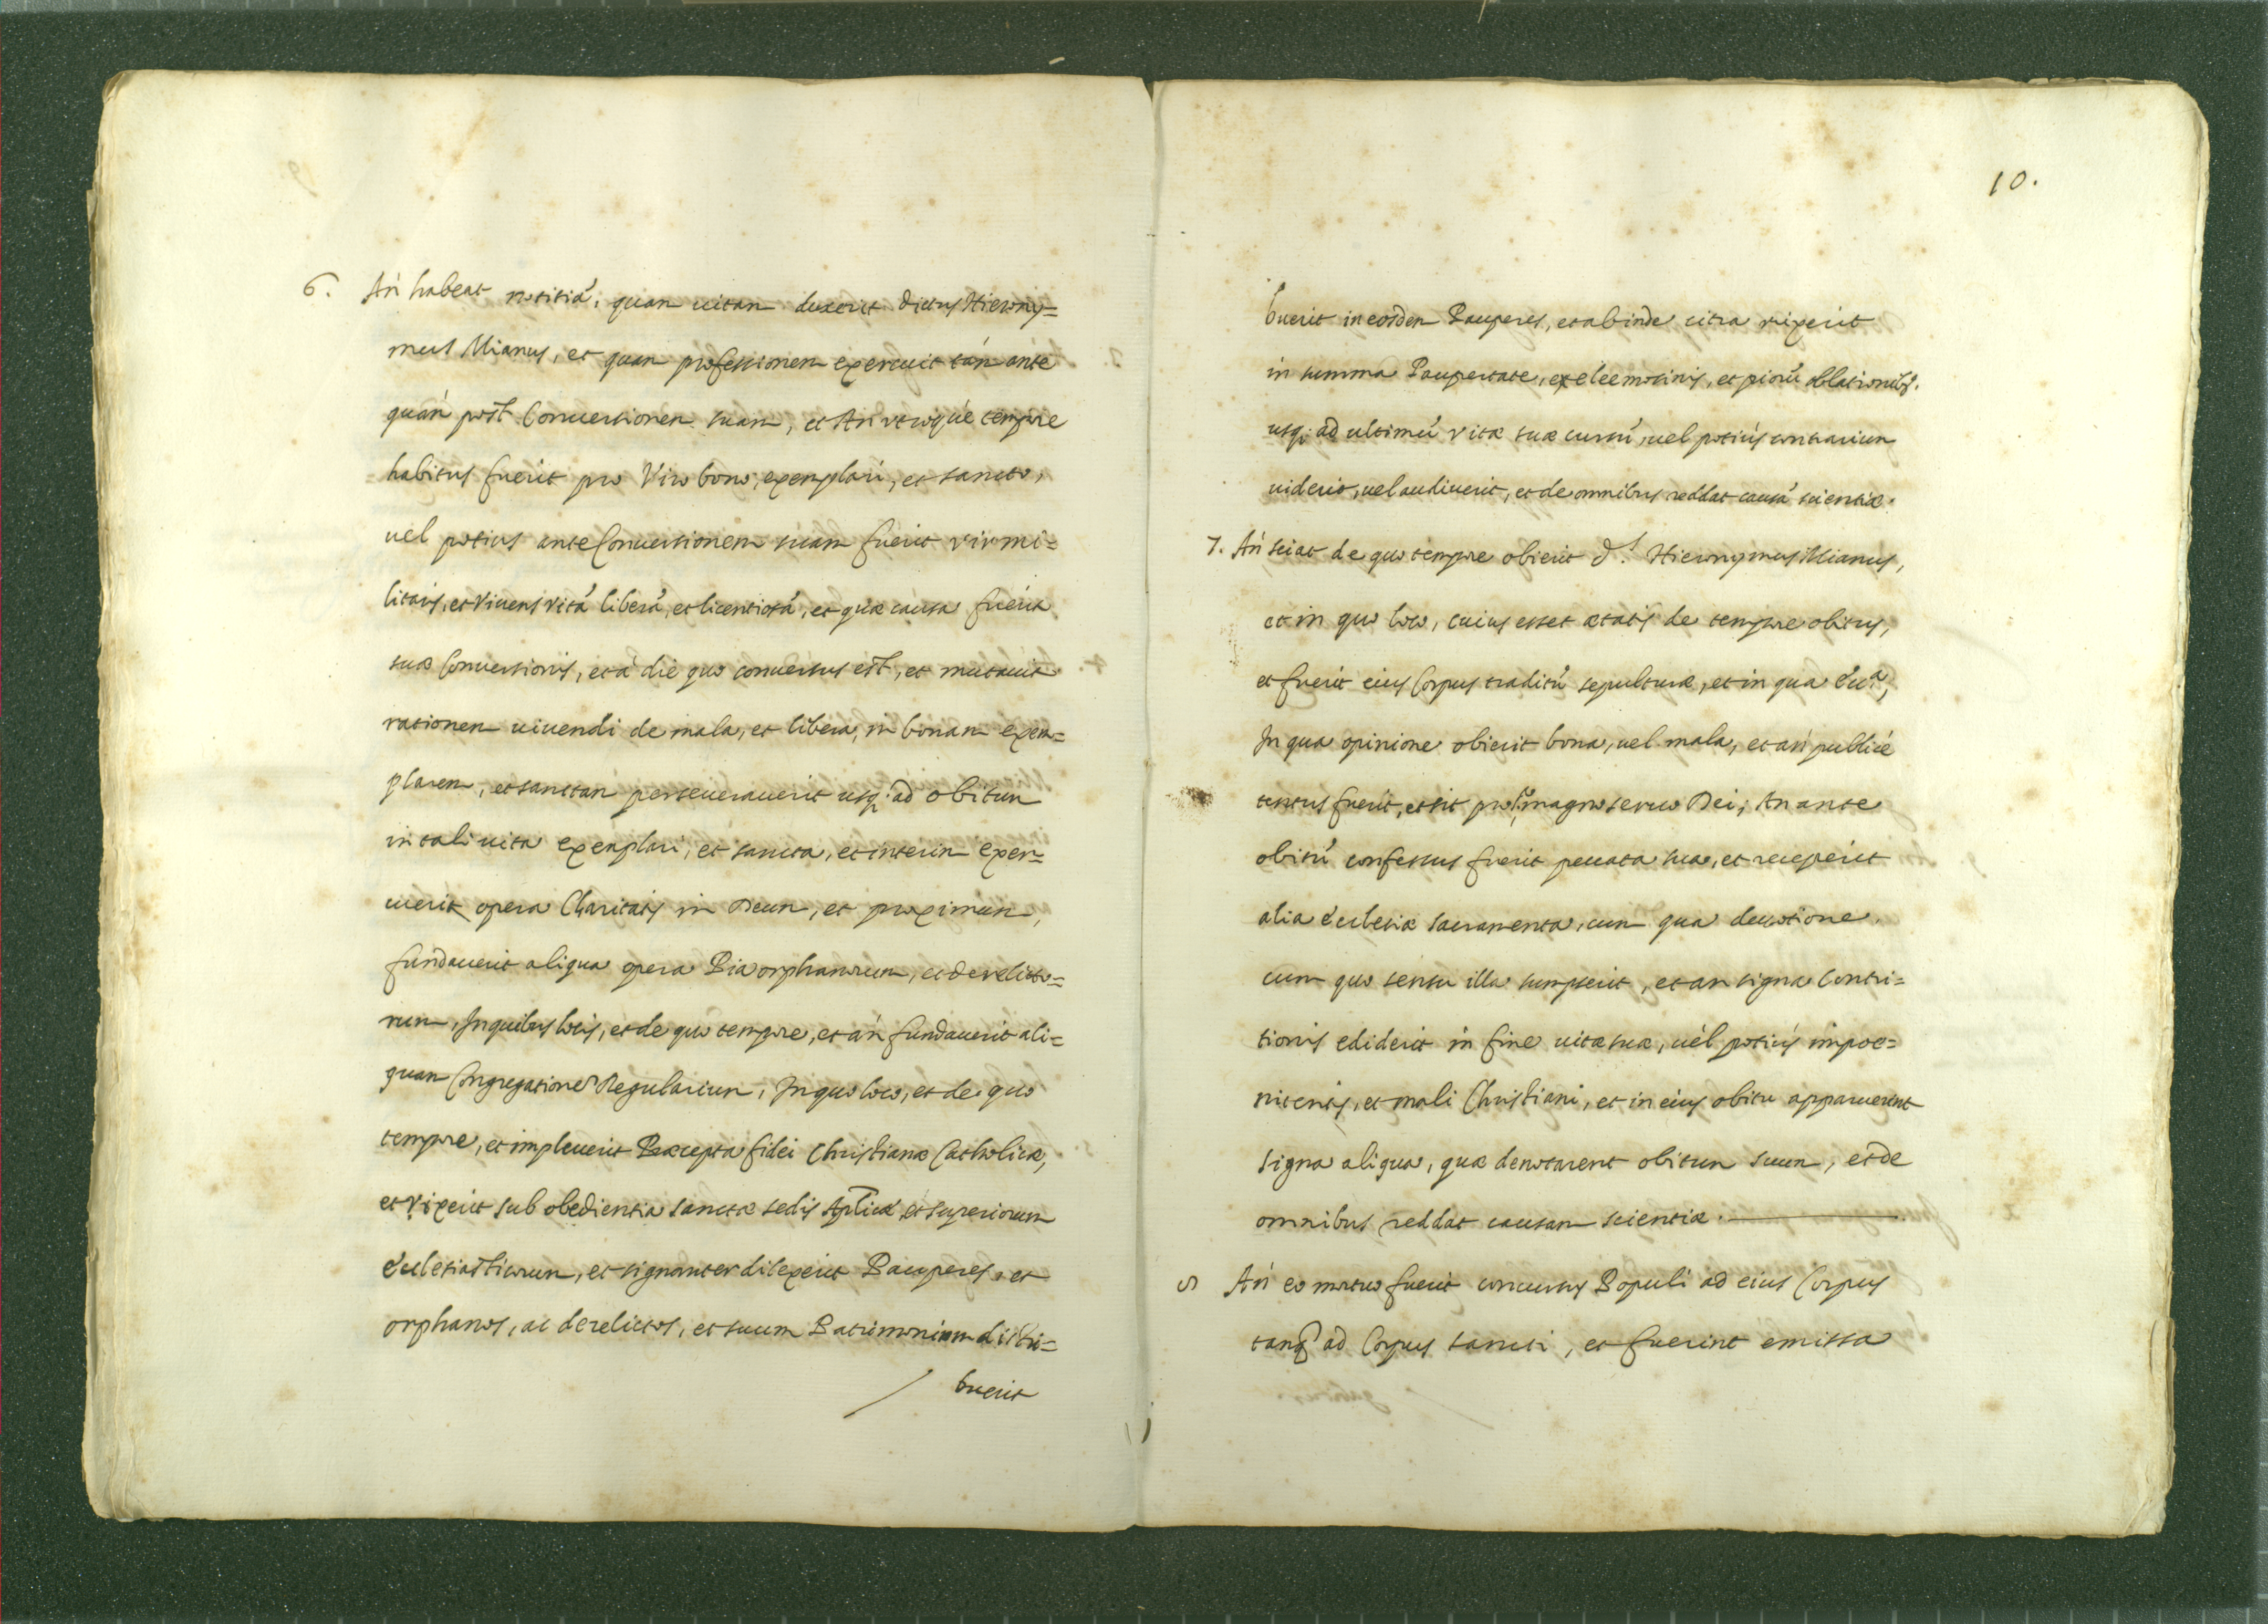 6. An habeat notitiā, quam uitam duxerit dictus Hierony=
mus Mianus, et quam professionem exercuit tàm ante
quàm post Conuersionem suam, et An utroque tempore
habitus fuerit pro Viro bono, exemplari, et sancto,
uel potius ante Conuersionem suam fuerit vir mi=
litaris, et Viuens vitā liberā, et licentiosā, et quæ causa fuerit
suæ Conuersionis, et à die quo conuersus est, et mutauit
rationem uiuendi de mala, et libera, in bonam exem=
plarem, et sanctam perseuerauerit usq; ad obitum
in tali uita exemplari, et sancta, et interim exer=
cuerit opera Charitatis in Deum, et proximum,
fundauerit aliqua opera Pia orphanorum, et derelicto=
rum, In quibus locis, et de quo tempore, et an fundauerit ali=
quam Congregationē Regularium, In quo loco, et de quo
tempore, et impleuerit Præcepta fidei Christianæ Catholicæ,
et vixerit sub obedientia sanctæ sedis Aplicæ et superiorum
Ecclesiasticorum, et signanter dilexerit Pauperes, et
orphanos, ac derelictos, et suum Patrimonium distri=
buerit
10.
buerit in eosdem Pauperes, et abinde citra vixerit
in summa Paupertate, ex eleemosinis, et piorū oblationibs.
usq; ad ultimū vitæ suæ cursū, uel potiùs contrarium
uiderit, uel audiuerit, et de omnibus reddat causā scientiæ.
7. An sciat de quo tempore obierit ds. Hieronymus Mianus,
et in quo loco, cuius esset ætatis de tempore obitus,
et fuerit eius Corpus traditū sepulturæ, et in qua Eccª,
In qua opinione obierit bona, uel mala, et an publicè
tentus fuerit, et sit pro magno seruo Dei; An ante
obitū confessus fuerit peccata sua, et receperit
alia Ecclesiæ sacramenta, cum qua deuotione.
cum quo sensu illa sumpserit, et an signa Contri=
tionis ediderit in fine uitæ suæ, uel potiùs impoe=
nitentis, et mali Christiani, et in eius obitu apparuerint
signa aliqua, quæ denotarent obitum suum, et de
omnibus reddat causam scientiæ.
8 An eo mortuo fuerit concursus Populi ad eius Corpus
tanq̄ ad Corpus sancti, et fuerint emissa